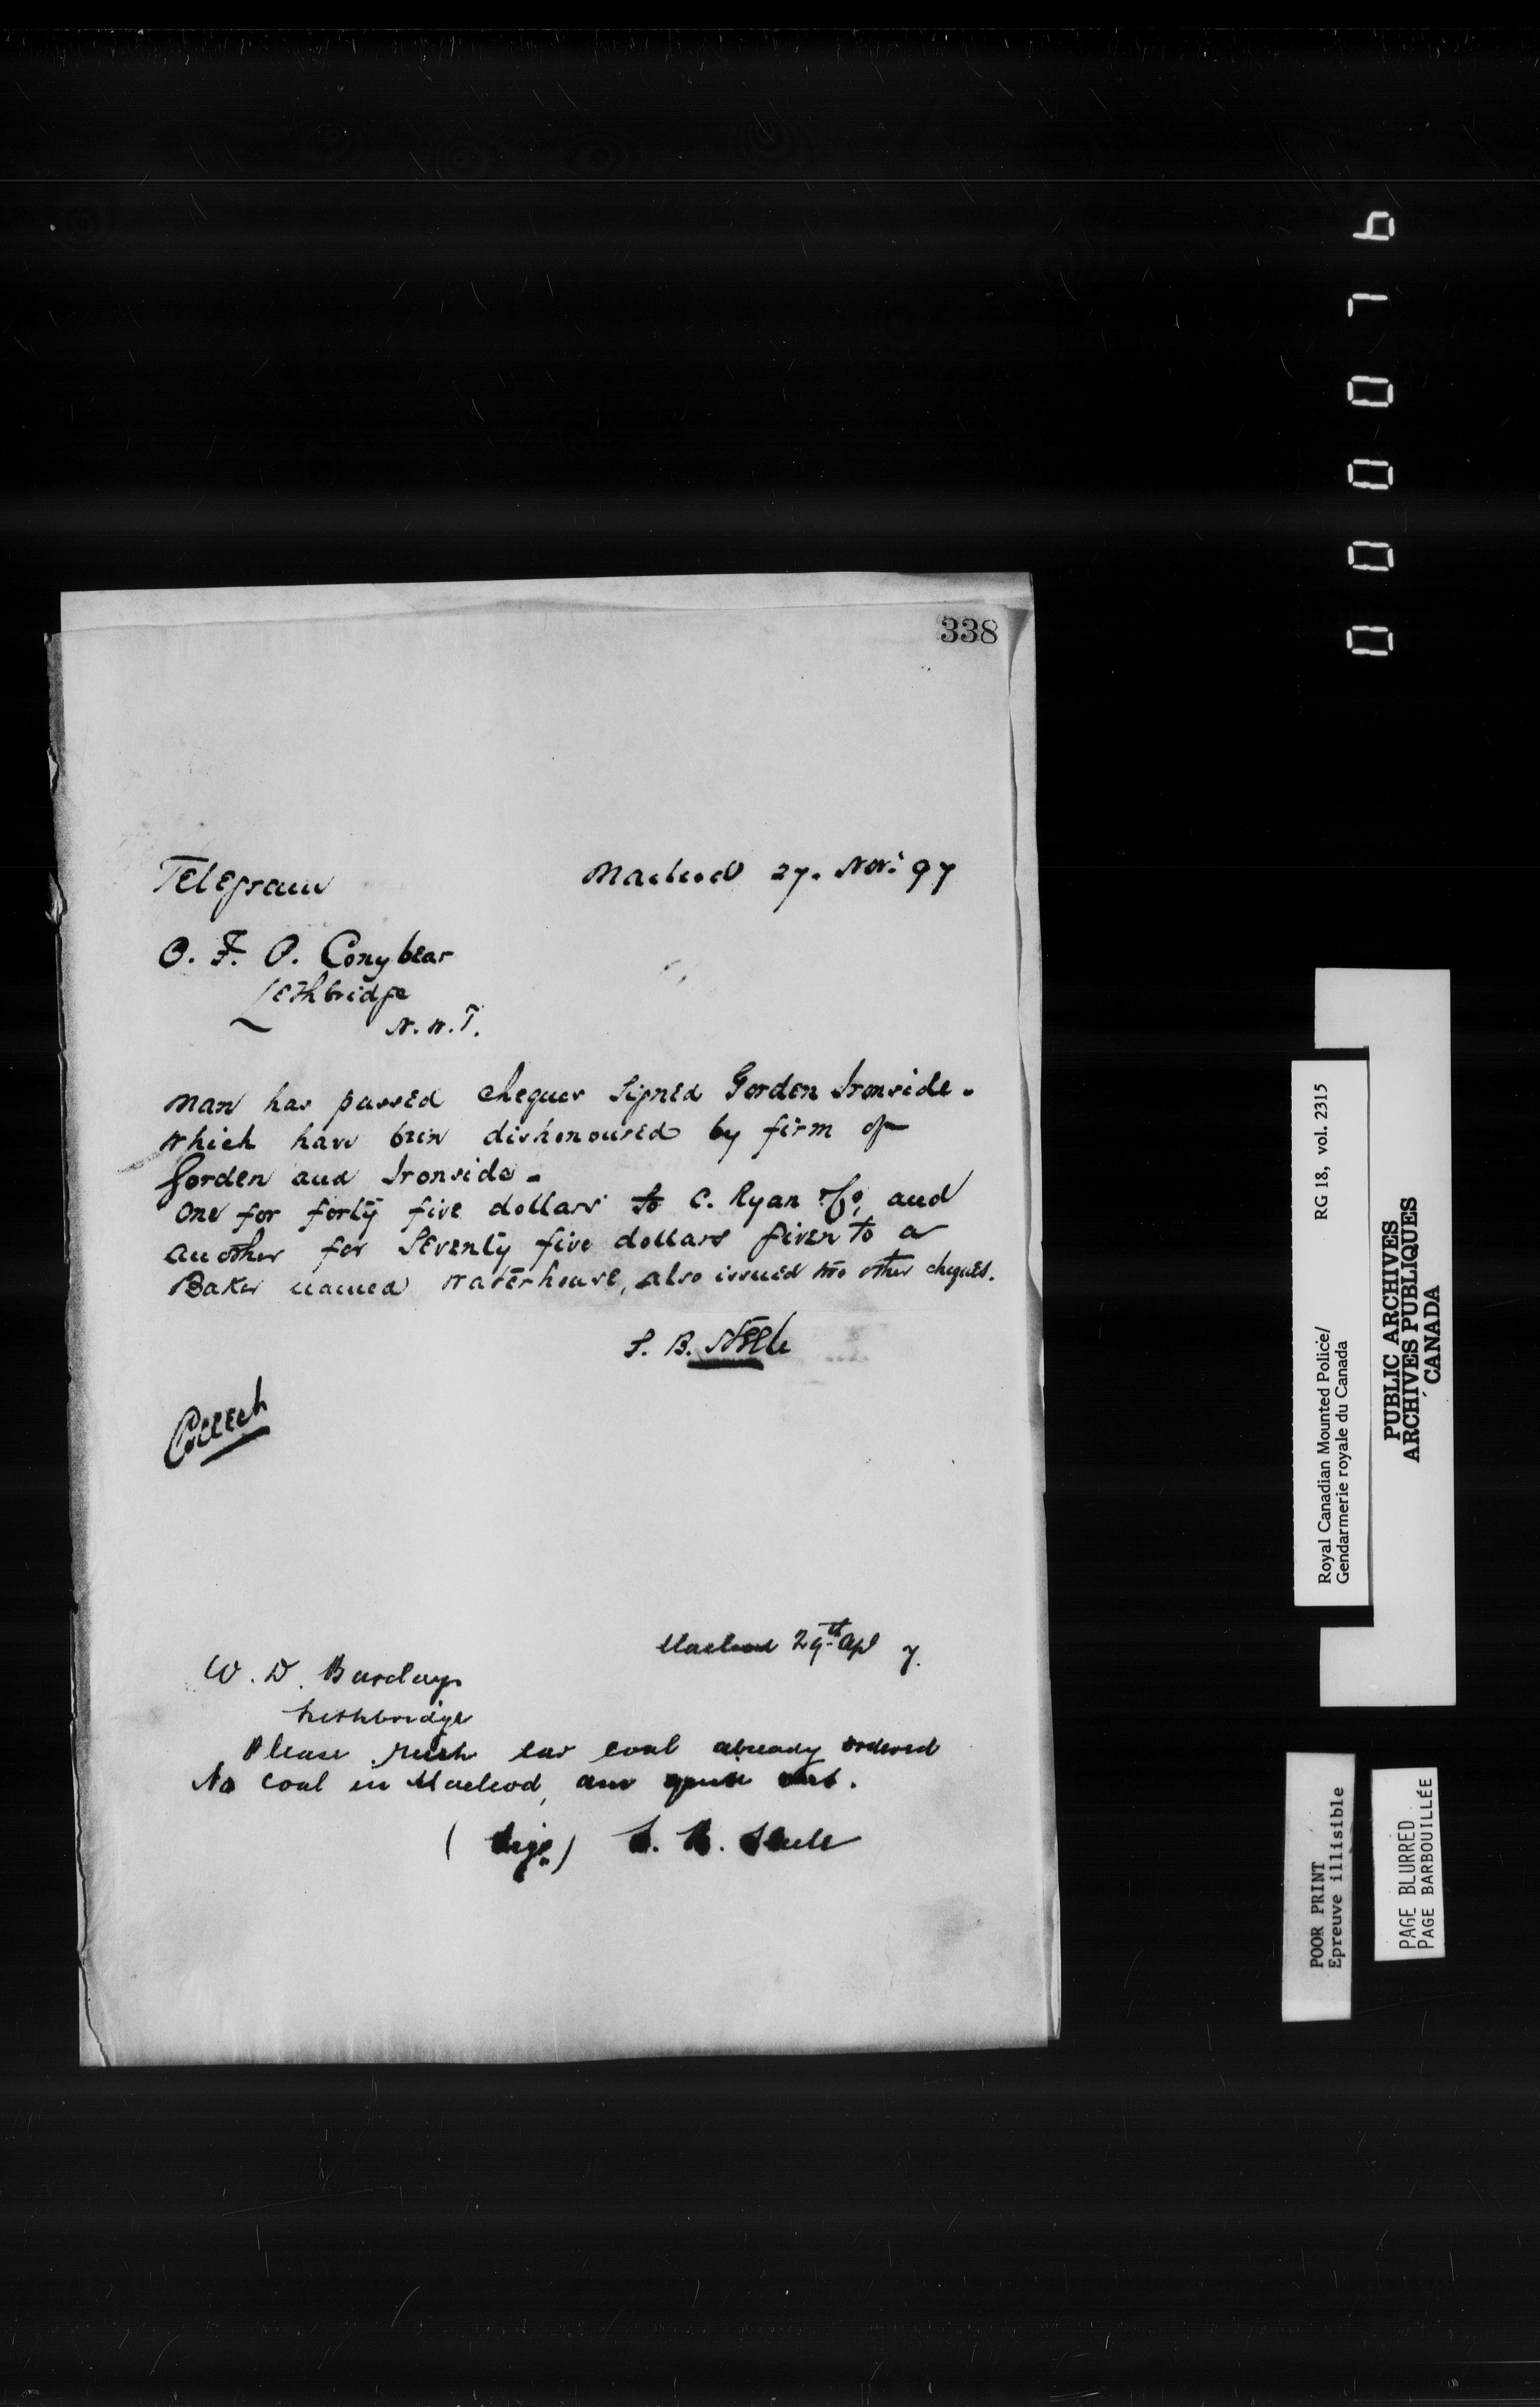 338
Telegram Macleod 27. Nov. 97
C. F. P. Conybear
Lethbridge
N.W.T.
Man has passed cheques signed Gorden Ironside.
which have been dishonoured by firm of
Gorden and Ironside.
One for forty five dollars to C. Ryan & Co, and
another for seventy five dollars given to a
Baker named Waterhouse, also issued two other cheques.
S. B. Steele
Collect
Macleod 29th Apl 7.
W. D. Barclay
Lethbridge
Please rush car coal already ordered
No coal in Macleod, am quite out.
(Sigd.) S. B. Steele
0000076
Royal Canadian Mounted Police/ RG 18, vol. 2315
Gendarmerie royale du Canada
PUBLIC ARCHIVES
ARCHIVES PUBLIQUES
CANADA
POOR PRINT
Epreuve illisible
PAGE BLURRED
PAGE BARBOUILLÉE